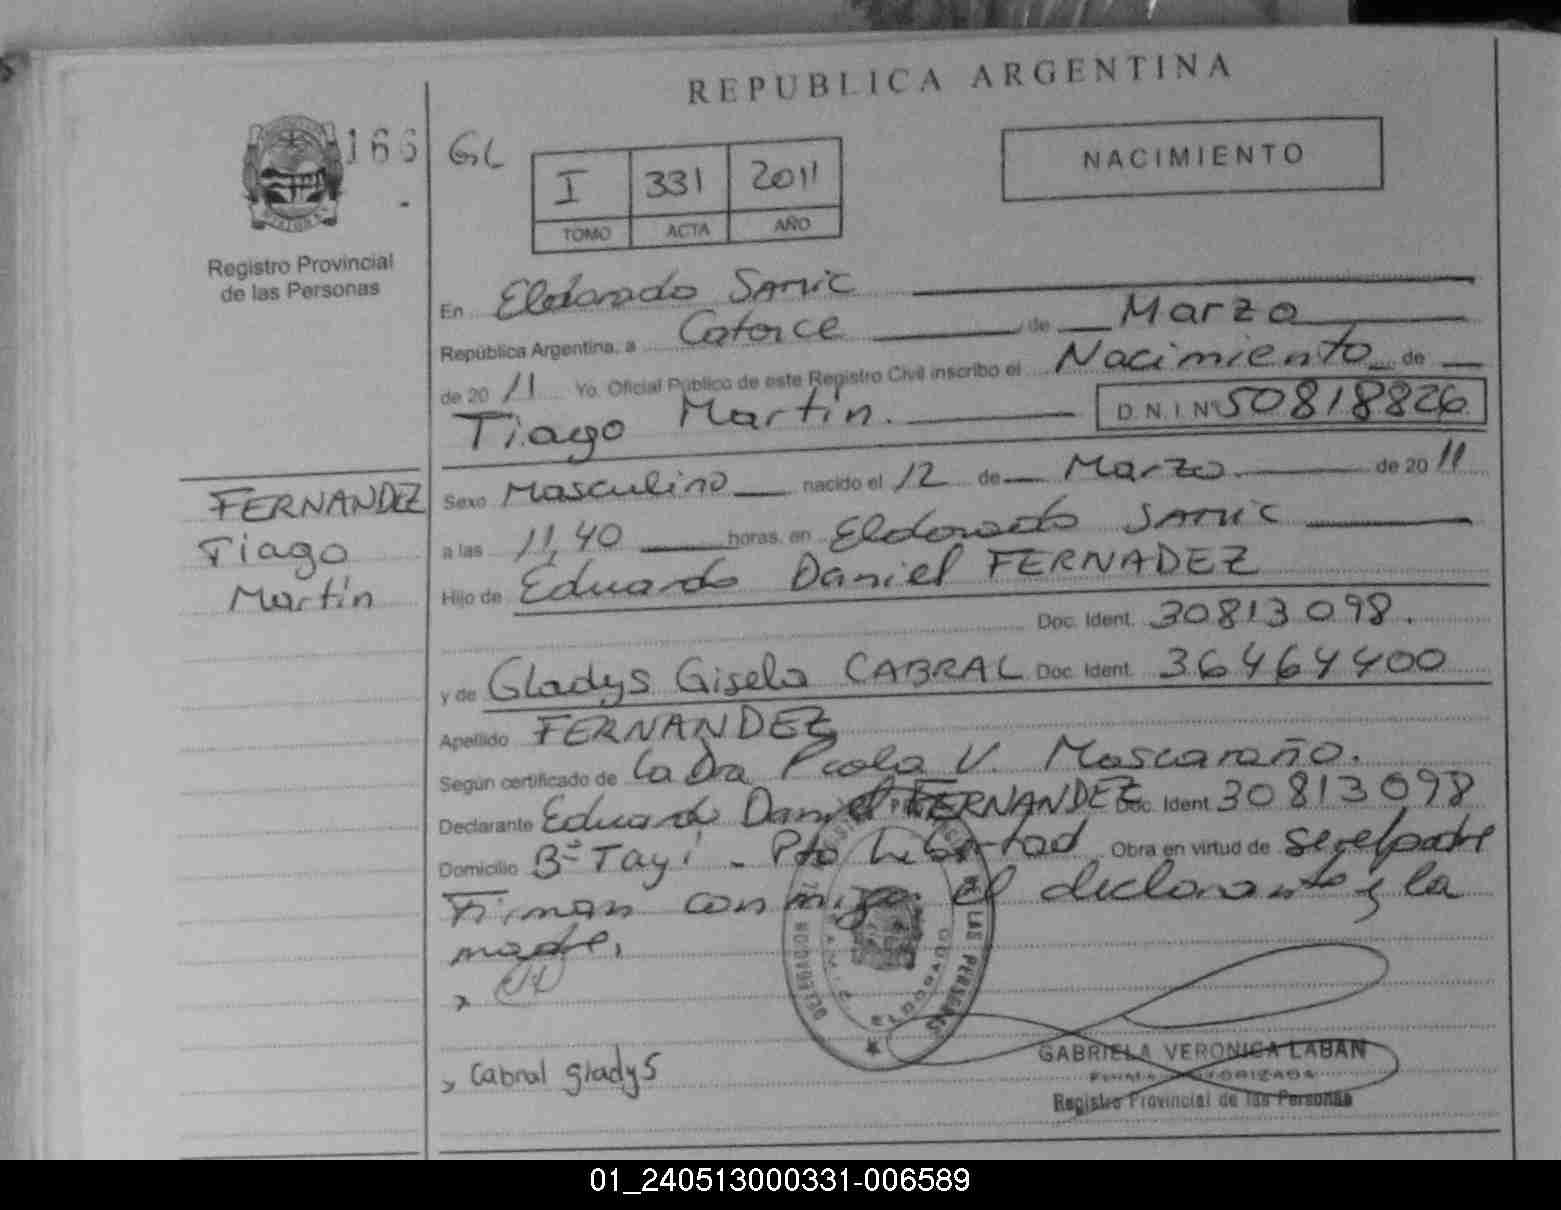 REPUBLICA ARGENTINA
166
GL
NACIMIENTO
I 331 2011
TOMO ACTA AÑO
Registro Provincial
de las Personas
En Eldorado SAMIC
República Argentina, a Catorce de Marzo
de 20 11 Yo, Oficial Público de este Registro Civil inscribo el Nacimiento de
Tiago Martín. D.N.I. Nº 50818826
FERNANDEZ
Tiago
Martín
Sexo Masculino nacido el 12 de Marzo de 20 11
a las 11,40 horas, en Eldorado SAMIC
Hijo de Eduardo Daniel FERNADEZ
Doc. Ident. 30813098.
y de Gladys Gisela CABRAL Doc. Ident. 36464400
Apellido FERNANDEZ
Según certificado de la Dra Paola V. Mascaraño.
Declarante Eduardo Daniel FERNANDEZ Doc. Ident 30813098
Domicilio Bº Tayi - Pto Libertad Obra en virtud de ser el padre
Firman conmigo el declarante y la
madre.
Cabral gladys
LAS PERSONAS
ELDORADO
GABRIELA VERONICA LABAN
FIRMA AUTORIZADA
Registro Provincial de las Personas
01_240513000331-006589